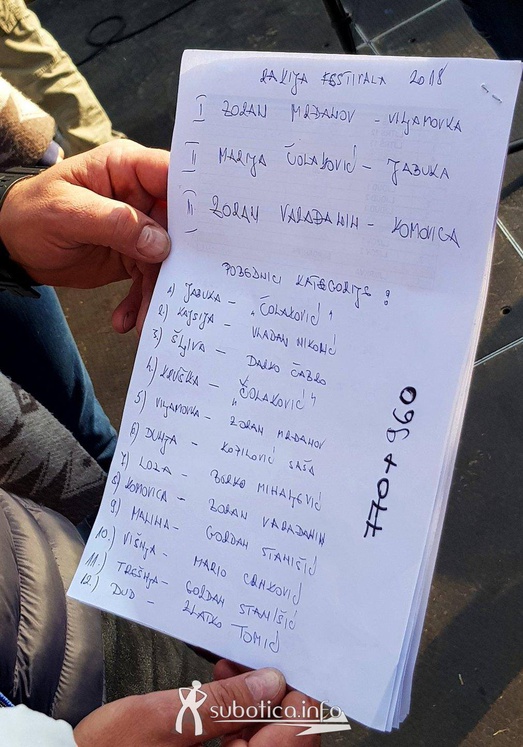 RAKIJA FESTIVALA 2018
I ZORAN MRĐANOV - VILJAMOVKA
II MARIJA ČOLAKOVIĆ - JABUKA
III ZORAN VARAĐANIN - KOMOVICA
POBEDNICI KATEGORIJE :
1) JABUKA - "ČOLAKOVIĆ"
2) KAJSIJA - VLADAN NIKOLIĆ
3) ŠLJIVA - DARKO ČABRO
4) KRUŠKA - "ČOLAKOVIĆ"
5) VILJAMOVKA - ZORAN MRĐANOV
6) DUNJA - SAŠA
7) LOZA - BORKO MIHALJEVIĆ
8) KOMOVICA - ZORAN VARAĐANIN
9) MALINA - GORDAN STANIŠIĆ
10.) VIŠNJA - MARIO CRNKOVIĆ
11.) TREŠNJA - GORDAN STANIŠIĆ
12.) DUD - ZLATKO TOMIĆ
770 + 960
subotica.info